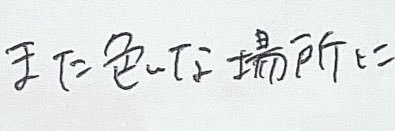 また色んな場所に